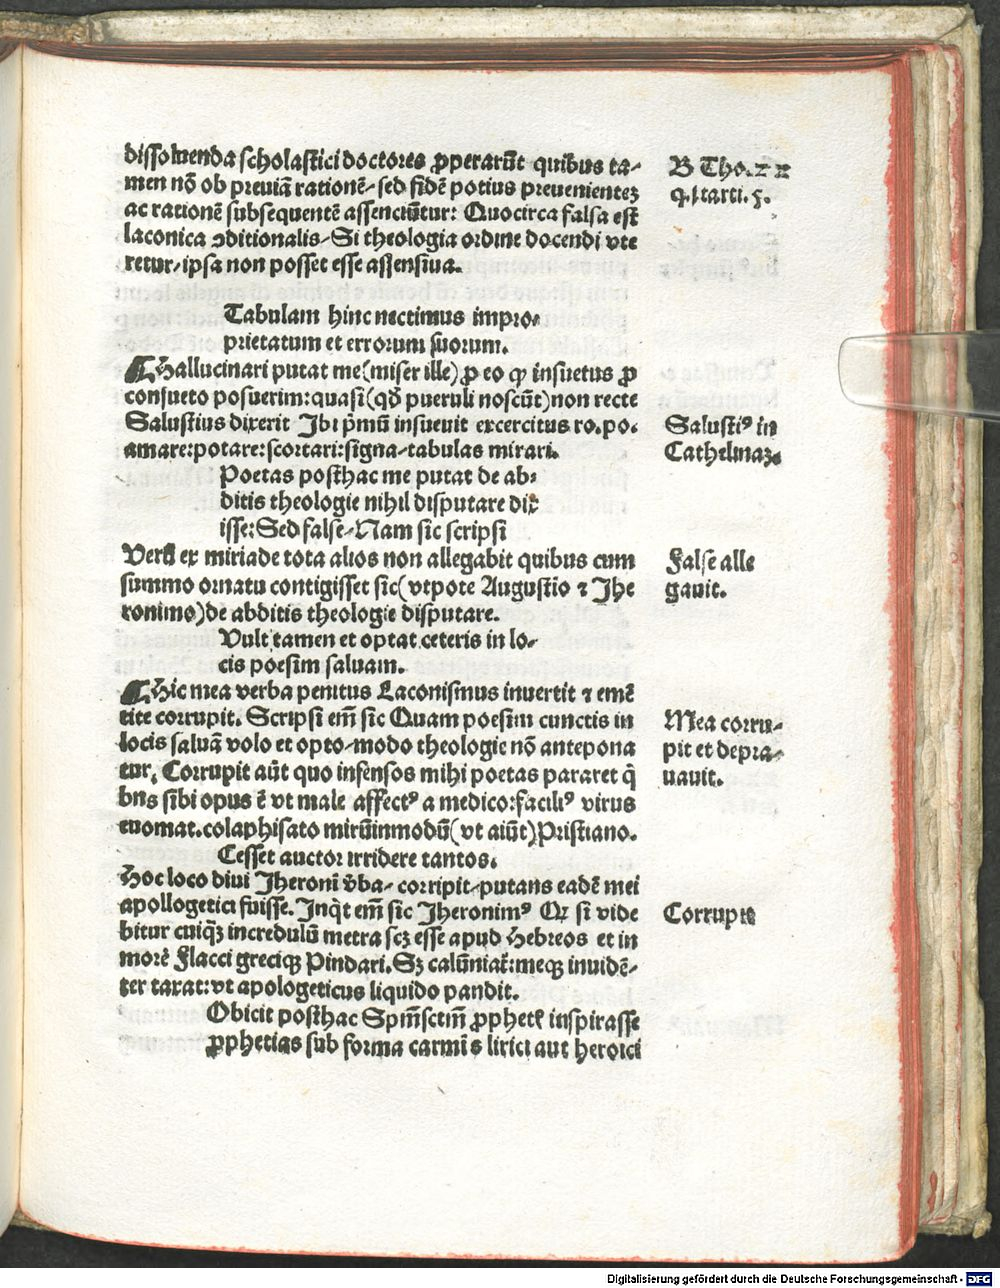 dissoluenda scholastici doctores ꝓperarūt quibus ta-
men nō ob preuiā rationē-sed fidē potius preuenientez
ac rationē subsequentē assenciūtur: Quocirca falsa est
laconica ↄditionalis-Si theologia ordine docendi vte
retur/ipsa non posset esse assensiua.
B Tho.
Tabulam hinc nectimus impro-
prietatum et errorum suorum.
Hallucinari putat me(miser ille) ꝓ eo ꝙ insuetus ꝓ
consueto posuerim:quasi(qḋ pueruli noscūt)non recte
Salustius dixerit Ibi p̄mū insueuit excercitus ro.po.
amare:potare:scortari:signa-tabulas mirari.
Salustiꝰ in
Cathelinaꝫ.
Poetas posthac me putat de ab-
ditis theologie nihil disputare dix
isse:Sed false-Nam sic scripsi
Verū ex miriade tota alios non allegabit quibus cum
summo ornatu contigisset sic(vtpote Augustio ⁊ Jhe
ronimo)de abditis theologie disputare.
False alle
gauit.
Vult tamen et optat ceteris in lo-
cis poesim saluam.
Hic mea verba penitus Laconismus inuertit ⁊ emē
tite corrupit. Scripsi em̄ sic Quam poesim cunctis in
locis saluā volo et opto-modo theologie nō antepona
tur. Corrupit aūt quo infensos mihi poetas pararet q̄
bns sibi opus ē vt male affectꝰ a medico:faciliꝰ virus
euomat.colaphisato mirūinmodū(vt aiūt)Pristiano.
Mea corru-
pit et depra-
uauit.
Cesset auctor irridere tantos.
Hoc loco diui Jheroni v̄ba-corripit-putans eadē mei
apollogetici fuisse. Inq̇t em̄ sic Jheronimꝰ Qꝛ si vide
bitur cuiqꝫ incredulū metra scꝫ esse apud Hebreos et in
morē Flacci greciqꝫ Pindari. Sꝫ calūniat̄:meqꝫ inuidē-
ter taxat:vt apologeticus liquido pandit.
Corrupte
Obicit posthac Spm̄sctm̄ ꝓphetꝭ inspirasse
ꝓphetias sub forma carminis lirici aut heroici
Digitalisierung gefördert durch die Deutsche Forschungsgemeinschaft - DFG